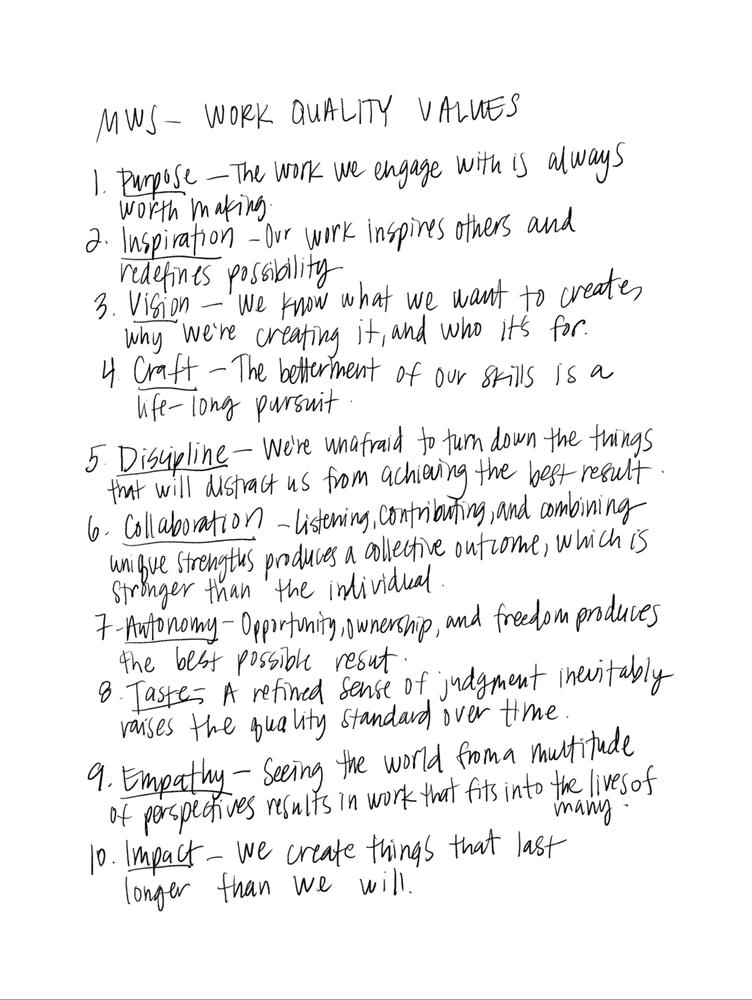 MWS - WORK QUALITY VALUES
1. Purpose - The work we engage with is always
worth making.
2. Inspiration - Our work inspires others and
redefines possibility
3. Vision - We know what we want to create,
why we're creating it, and who it's for.
4. Craft - The betterment of our skills is a
life-long pursuit.
5. Discipline - We're unafraid to turn down the things
that will distract us from achieving the best result.
6. Collaboration - Listening, contributing, and combining
unique strengths produces a collective outcome, which is
stronger than the individual.
7 - Autonomy - Opportunity, ownership, and freedom produces
the best possible resut.
8. Taste - A refined sense of judgment inevitably
raises the quality standard over time.
9. Empathy - Seeing the world from a multitude
of perspectives results in work that fits into the lives of
many.
10. Impact - We create things that last
longer than we will.